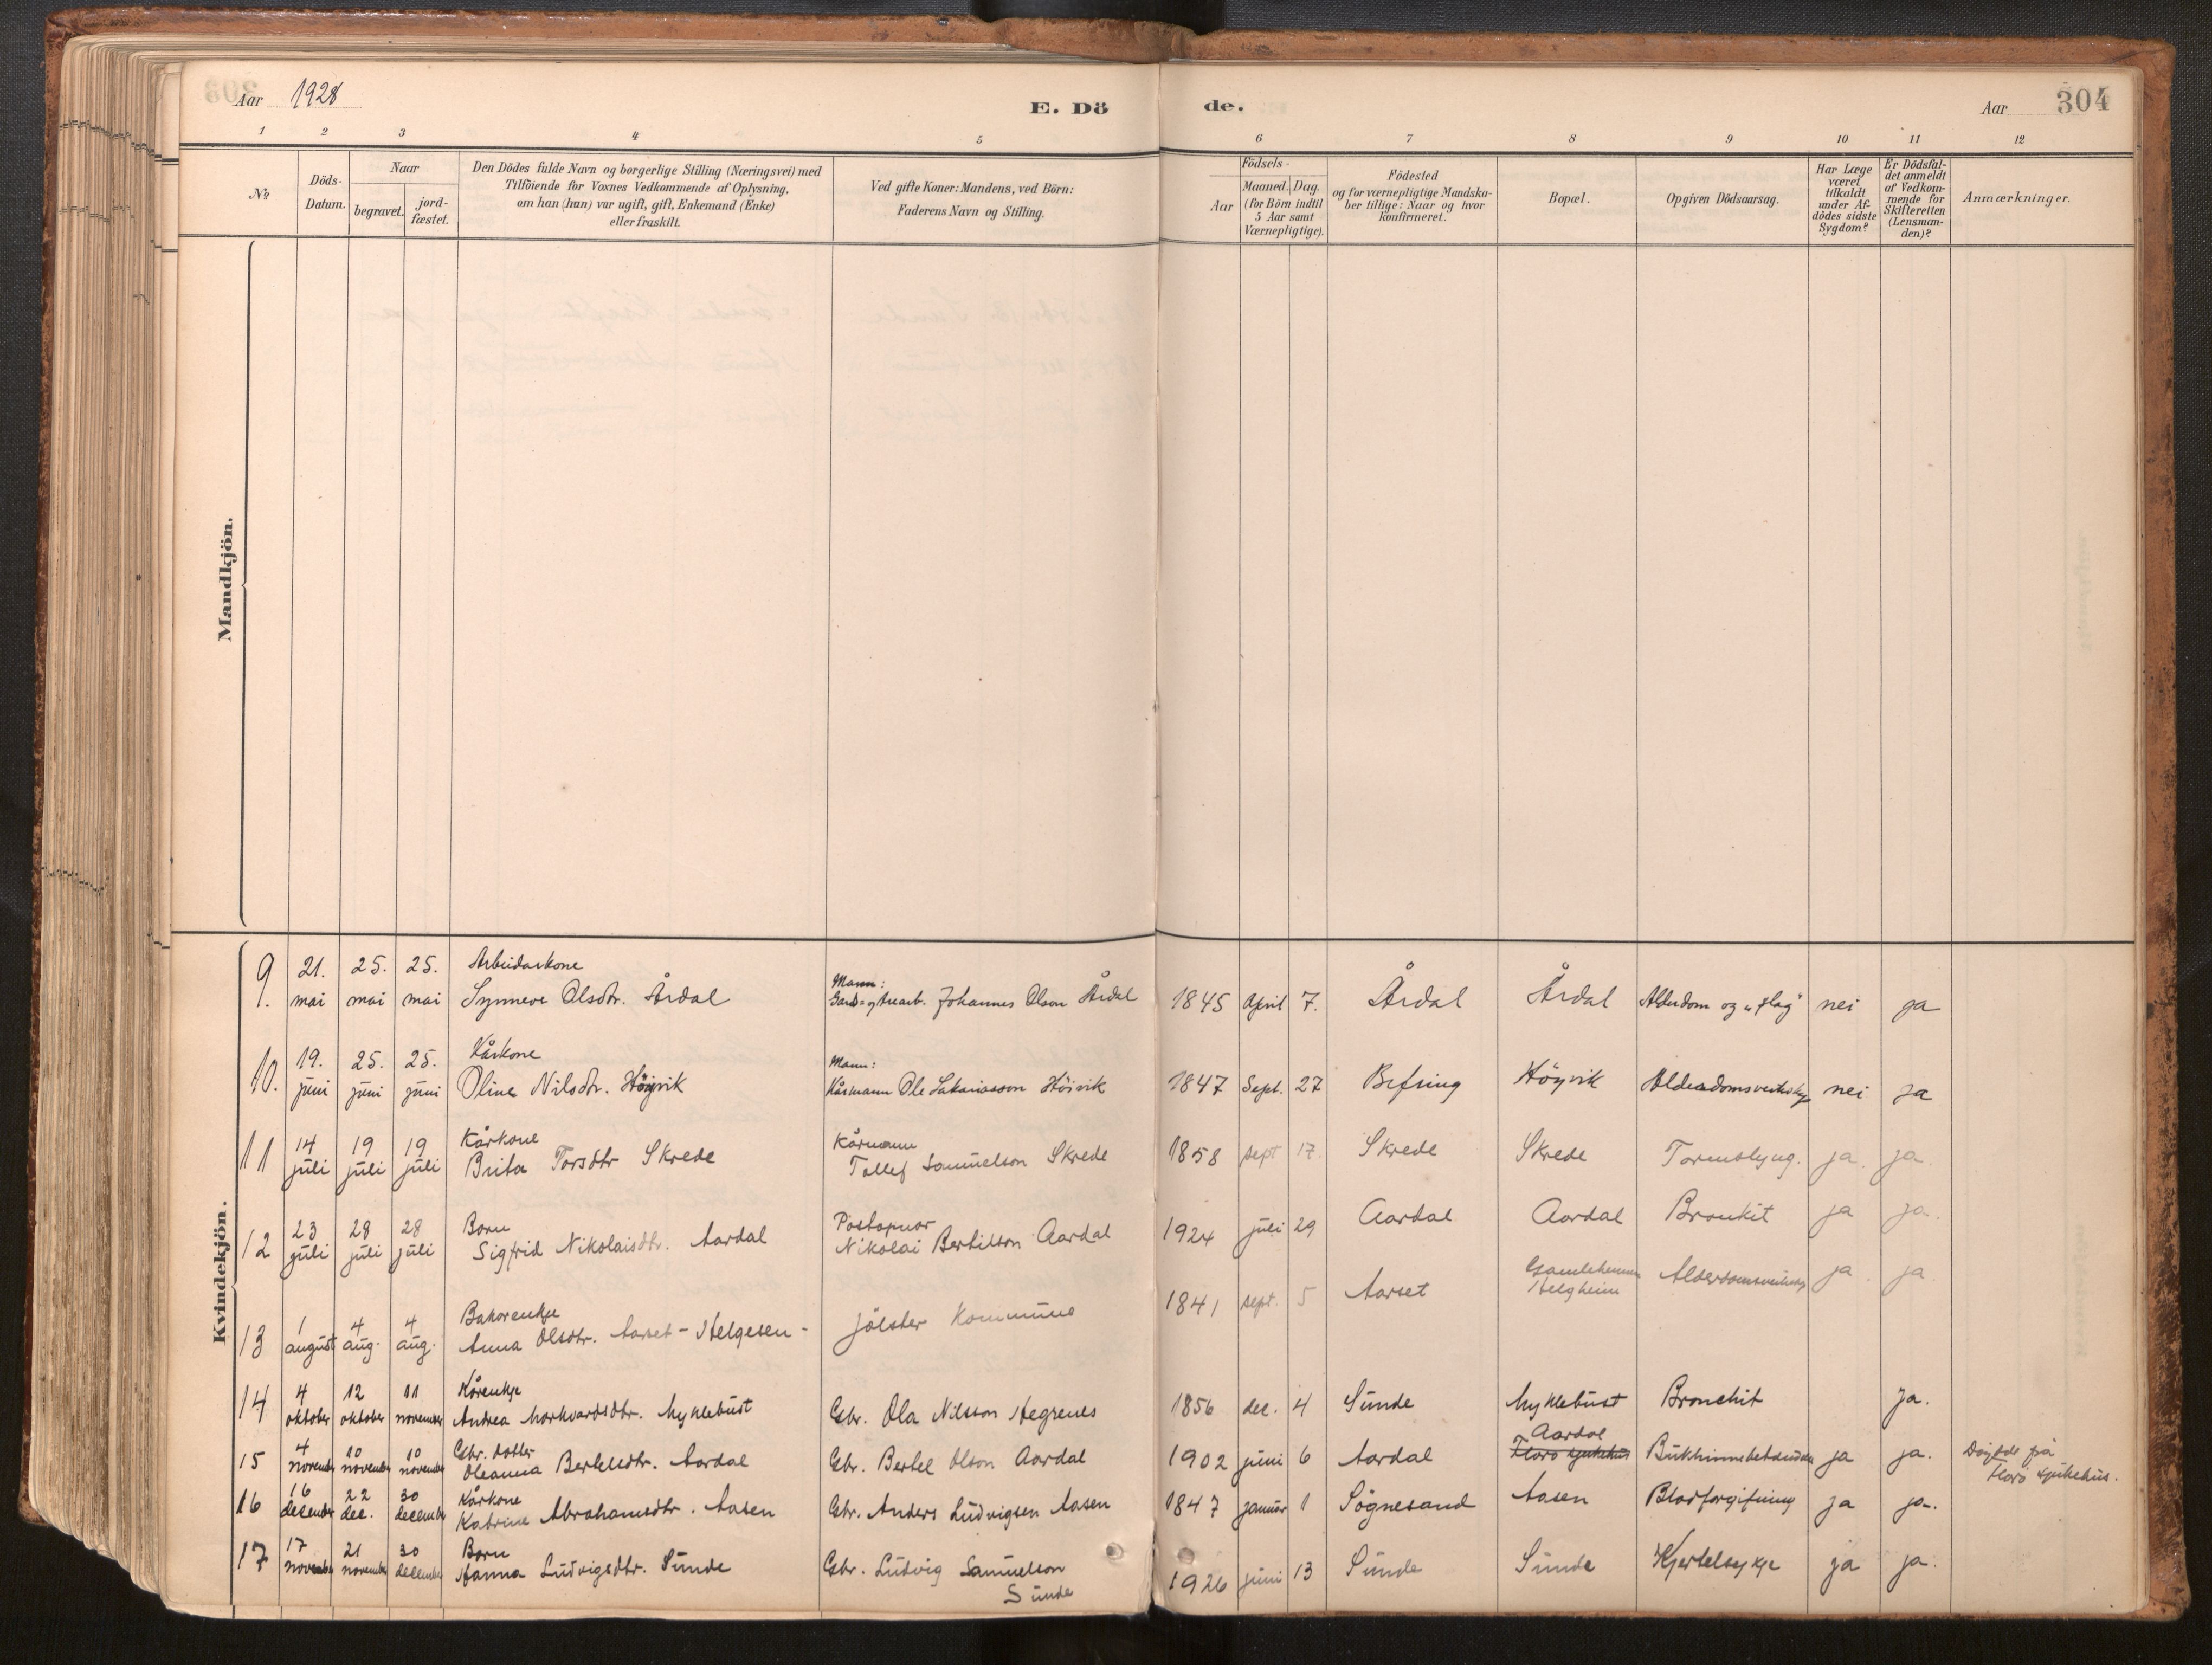 Aar 1928
E. Döde.
Aar 304
1 2 3 4 5 6 7 8 9 10 11 12
№
Döds-Datum.
Naar
begravet.
jordfæstet.
Den Dödes fulde Navn og borgerlige Stilling (Næringsvei) med
Tilföiende for Voxnes Vedkommende af Oplysning,
om han (hun) var ugift, gift, Enkemand (Enke)
eller fraskilt.
Ved gifte Koner: Mandens, ved Börn:
Faderens Navn og Stilling.
Födsels-
Aar
Maaned. Dag.
(for Börn indtil
5 Aar samt
Værnepligtige).
Födested
og for værnepligtige Mandskaber
tillige: Naar og hvor
konfirmeret.
Bopæl.
Opgiven Dödsaarsag.
Har Læge
været
tilkaldt
under Afdödes
sidste
Sygdom?
Er Dödsfaldet
anmeldt
af Vedkommende
for
Skifteretten
(Lensmanden)?
Anmærkninger.
Mandkjön.
Kvindekjön.
9. 21. mai 25. mai 25. mai Arbeidarkone
Synneve Olsdtr. Årdal Mann:
Johannes Olson Årdal 1845 April 7. Årdal Årdal Alderdom og „slag" nei ja
10. 19. juni 25. juni 25. juni Kårkone
Oline Nilsdtr. Höyvik Mann:
Kårmann Ole Sakariasson Höivik 1847 Sept. 27 Befring Höyvik nei ja
11 14 juli 19 juli 19 juli Kårkone
Brita Torsdtr Skrede Kårmann
Tollef Samuelson Skrede 1858 sept 17. Skrede Skrede Tarmslyng. ja ja
12 23 juli 28 juli 28 juli Born
Sigfrid Nikolaisdtr. Aardal Postopnar
Nikolai Bertilson Aardal 1924 juli 29 Aardal Aardal Bronkit ja ja.
13 1 august 4 aug. 4 aug. Bakarenkje
Anna Olsdtr. Aarset - Helgesen - Jölster Kommune 1841 sept. 5 Aarset Gamleheimen
Helgheim ja ja
14 4 oktober 12 oktober 11 november Kårenkje
Andrea Markvardsdtr. Myklebust Gbr. Ola Nilsson Hegrenes 1856 dec. 4 Sunde Myklebust Bronchit ja.
15 4 november 10 november 10 november Gbr. dotter
Oleanna Bertelsdtr. Aardal Gbr. Bertel Olson Aardal 1902 juni 6 Aardal Aardal
Florö sjukehus Bukhinnebetændelse ja ja. Döydde på
Florö sjukehus.
16 16 desember 22 dec. 30 december Kårkone
Katrine Abrahamsdtr. Aasen Gbr. Anders Ludvigsen Aasen 1847 januar 1 Sögnesand Aasen Blodforgifning ja ja.
17 17 november 21 november 30 december Born
Hanna Ludvigsdtr. Sunde Gbr. Ludvig Samuelson
Sunde 1926 juni 13 Sunde Sunde Kjertelsykje ja ja.